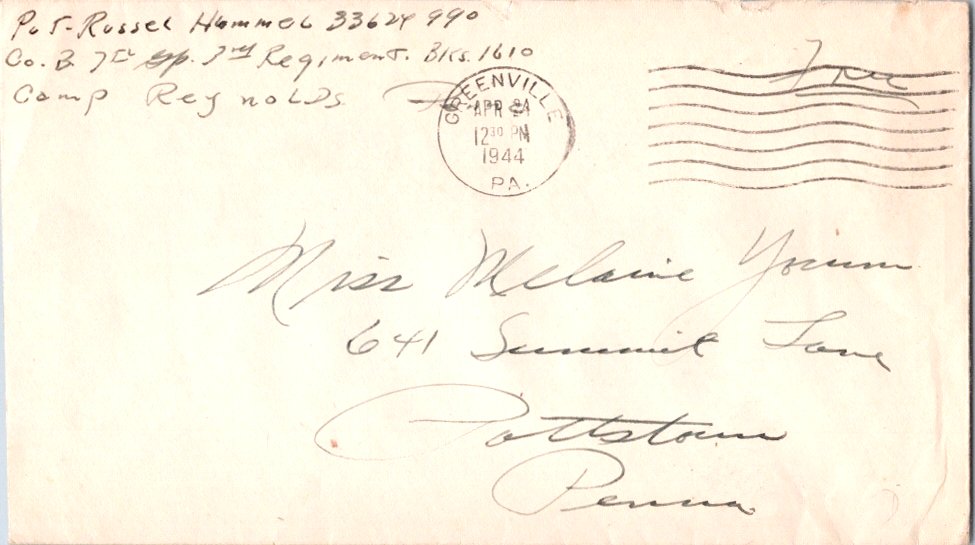 Pvt. Russel Hummel 33624990
Co. B. 7th Gp. 3rd Regiment. Bks. 1610
Camp Reynolds Pa
Free
GREENVILLE
APR 24
12 30 PM
1944
PA.
Miss Melaine
641 Summit Lane
Pottstown
Penna